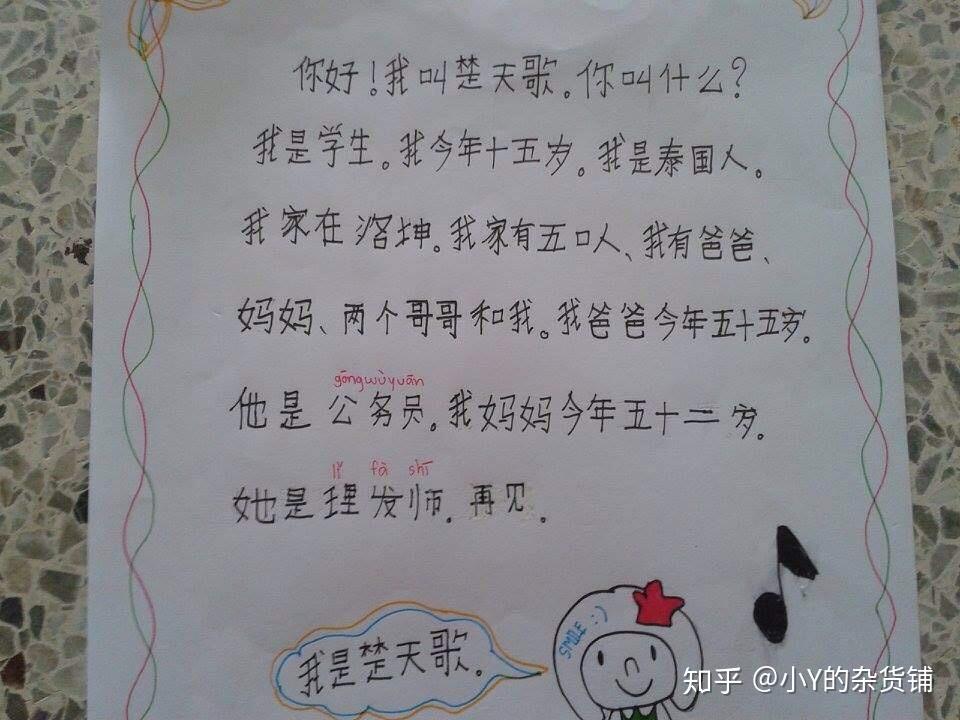 你好！我叫楚天歌。你叫什么？
我是学生。我今年十五岁。我是泰国人。
我家在洛坤。我家有五口人、我有爸爸、
妈妈、两个哥哥和我。我爸爸今年五十五岁。
gōngwùyuán
他是公务员。我妈妈今年五十二岁。
lǐ fà shī
她是理发师。再见。
我是楚天歌。
SMILE :)
知乎 @小Y的杂货铺